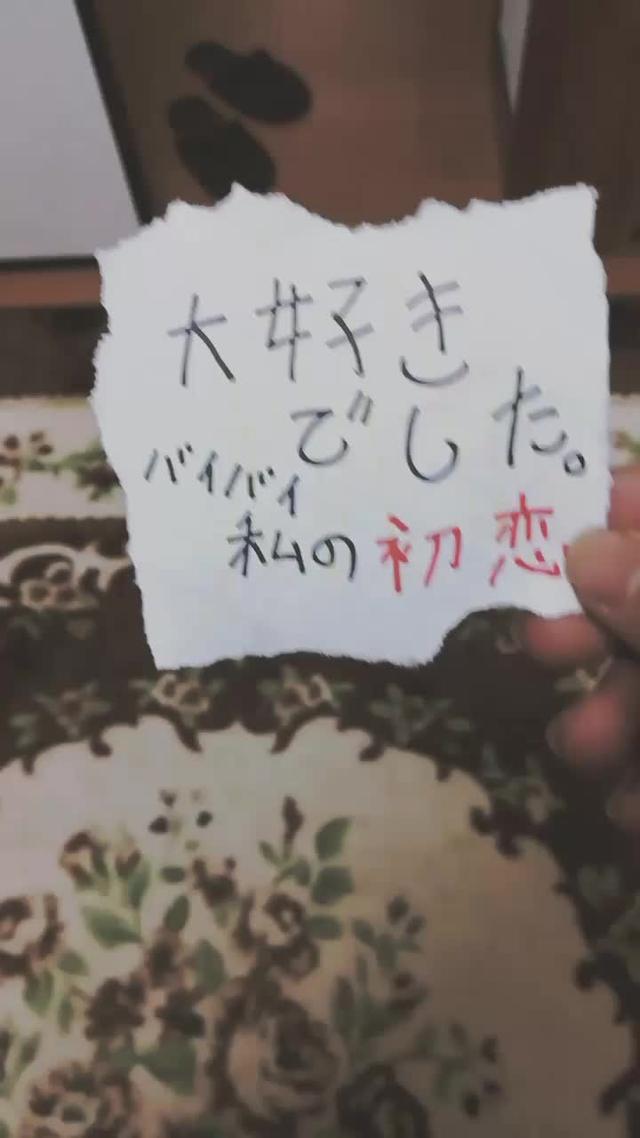 大好き
でした。
バイバイ
私の初恋